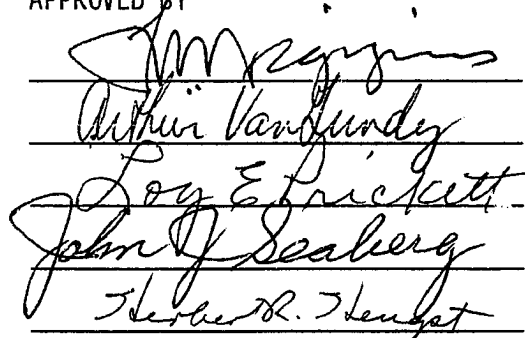 APPROVED BY
Arthur VanGundy
Loy E Prickett
John J Seaberg
Herbert R. Hengst